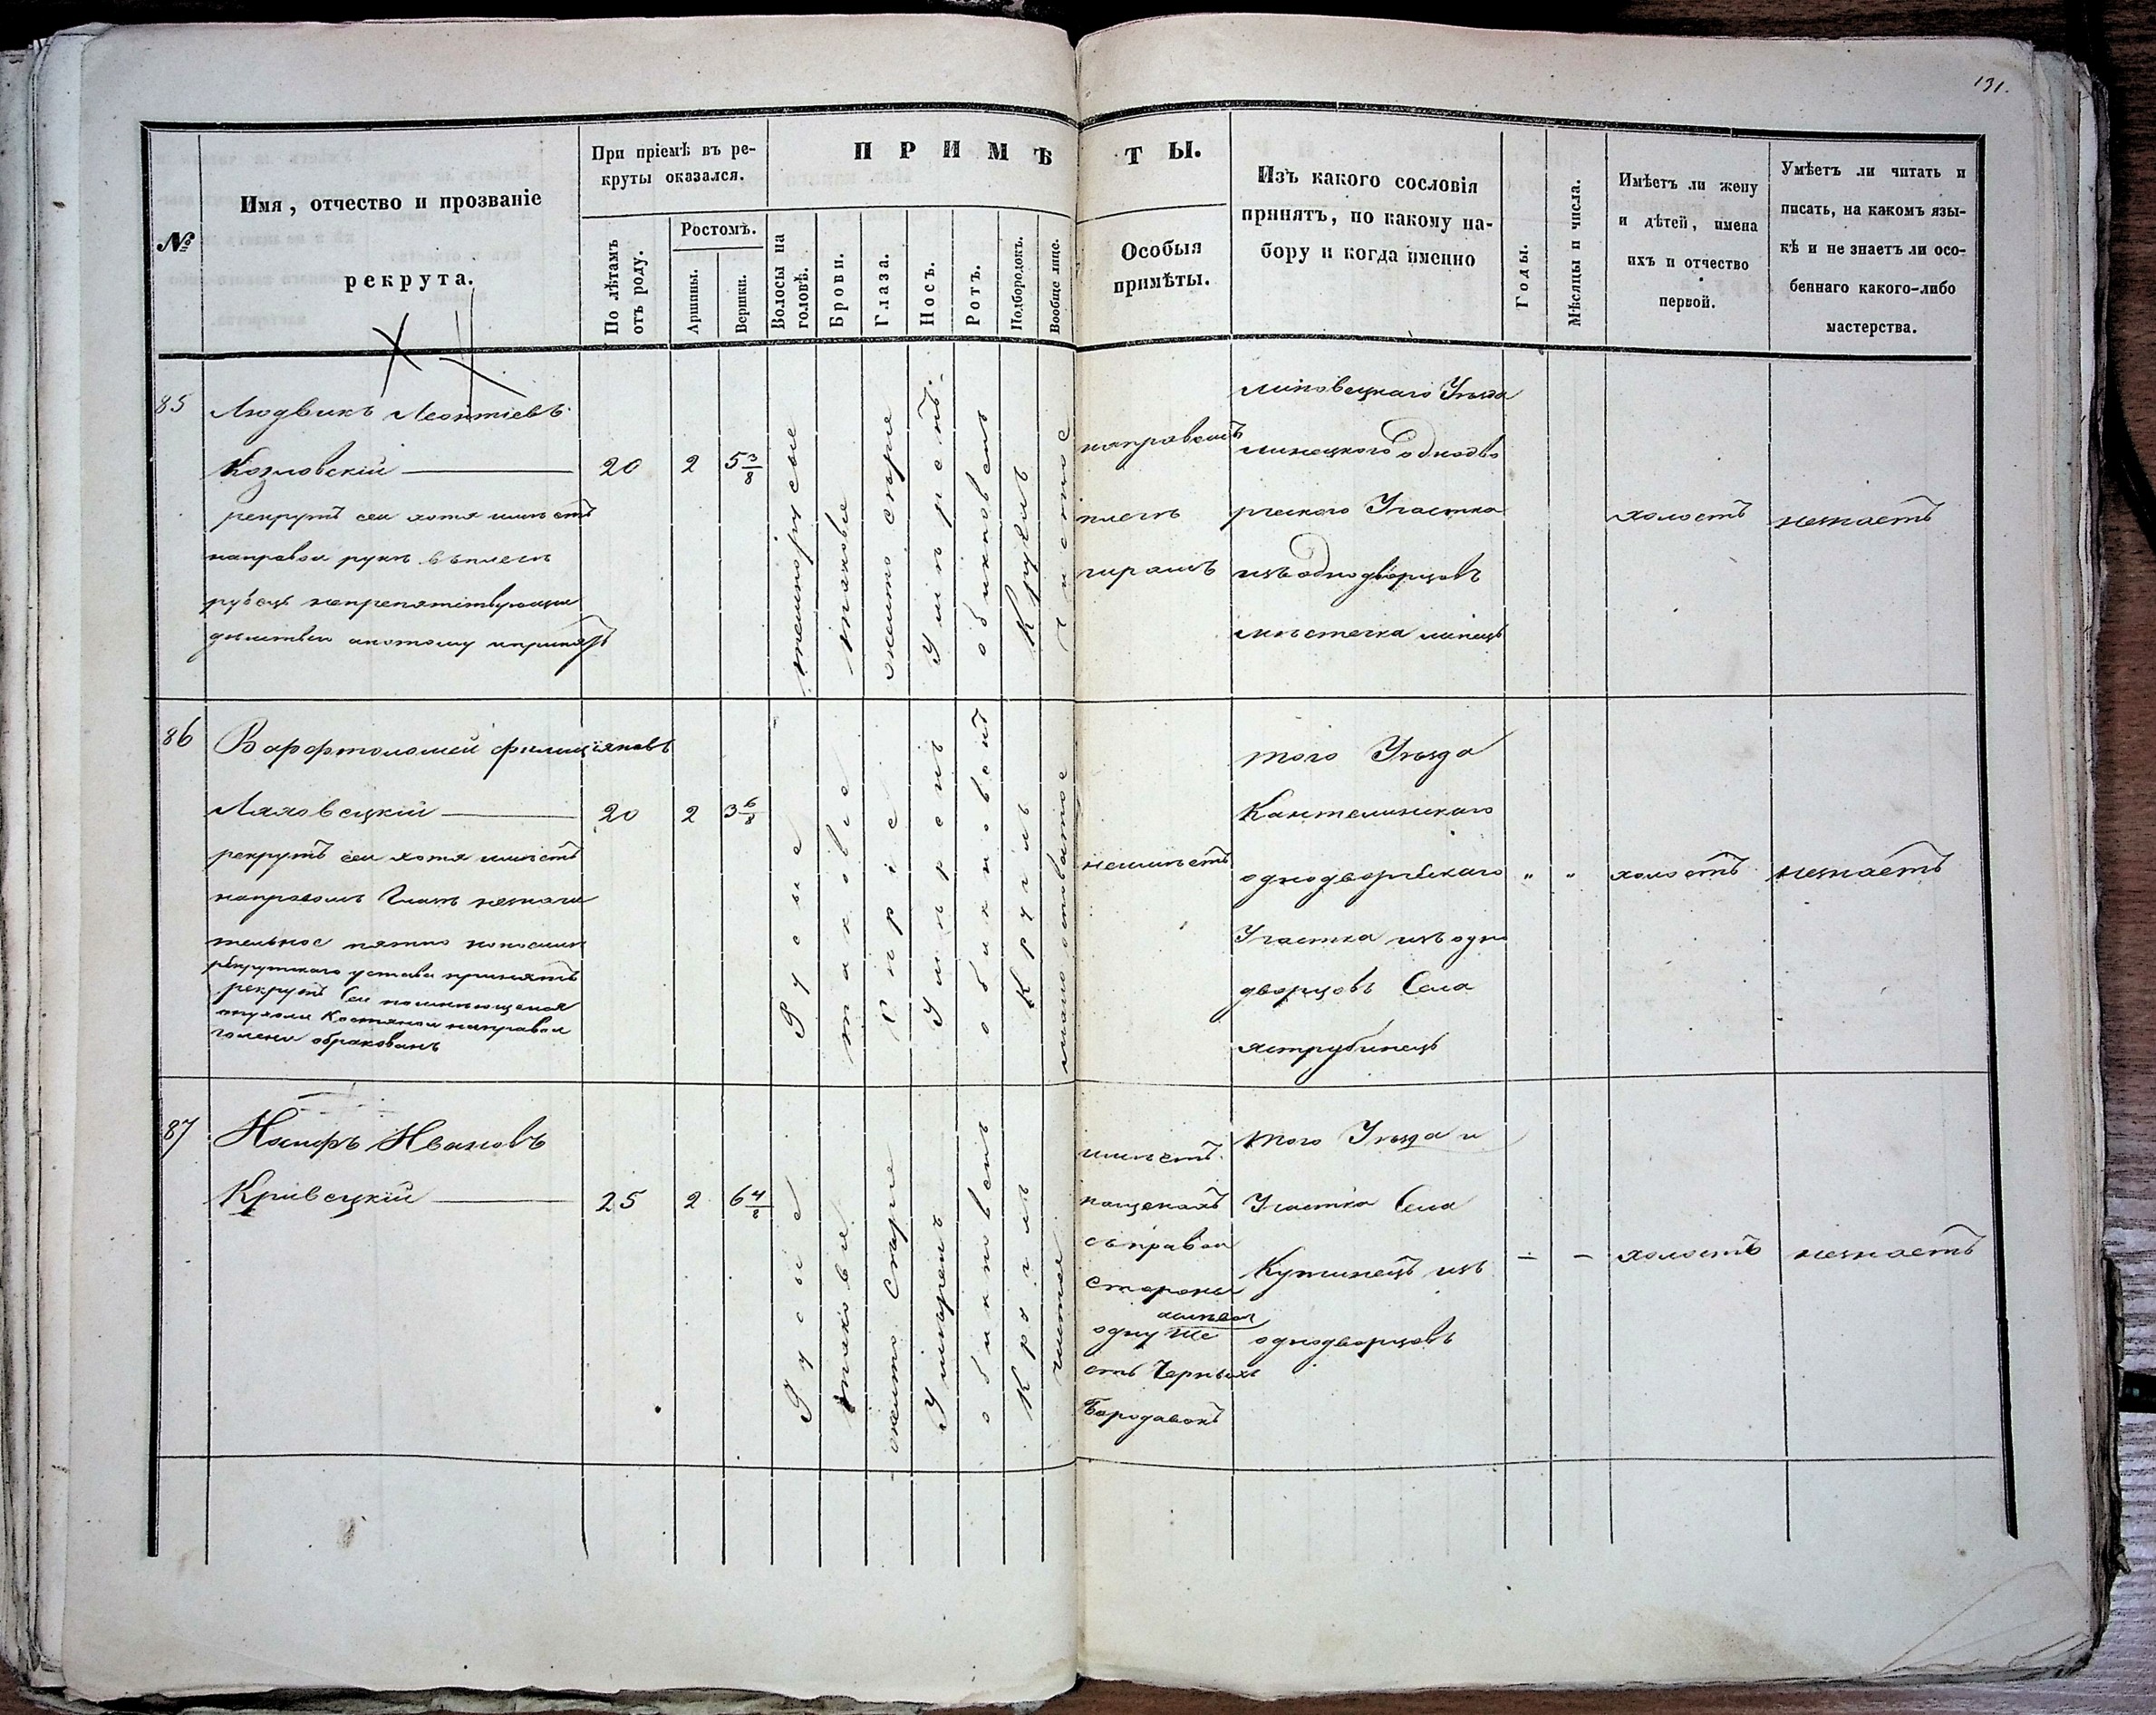 131.
№
Имя, отчество и прозваніе
рекрута.
При пріемѣ въ ре-
круты оказался.
По лѣтамъ
отъ роду.
Ростомъ.
Аршины.
Вершки.
ПРИМѢТЫ.
Волосы на
головѣ.
Брови.
Глаза.
Носъ.
Ротъ.
Подбородокъ.
Вообще лице.
Особыя
примѣты.
Изъ какого сословія
принятъ, по какому на-
бору и когда именно
Годы.
Мѣсяцы и числа.
Имѣетъ ли жену
и дѣтей, имена
ихъ и отчество
первой.
Умѣетъ ли читать и
писать, на какомъ язы-
кѣ и не знаетъ ли осо-
беннаго какого-либо
мастерства.
85
Людвикъ Леонтіевъ
Козловскій
рекрутъ сей хотя имѣетъ
направой рукѣ въплечѣ
рубецъ непрепятствующи
20
2
5 3/8
темнорусые
таковые
желто сѣрые
Умѣрен.
обикновен
Кругил
чистое
направомъ
плечѣ
шрамъ
липовецкаго Уѣзда
линецкого однодво
рческого Участка
изъ однодворцовъ
мѣстечка линецъ
холостъ
незнаетъ
86
Варфтоломей филиціяновъ
Ляховецкій
рекрутъ сей хотя имѣетъ
направомъ Глазѣ незначи
тельное пятно
рекрутскаго устава принятъ
рекрутъ Сей
направой
голени обракованъ
20
2
3 6/8
Русые
таковіе
Сѣріе
Умѣрен
обикновен
Кругил
мало осповатое
неимѣетъ
того Уѣзда
Кантелинскаго
однодворческаго
Участка изъ одно
дворцовъ Села
яструбинецъ
" "
холостъ
незнаетъ
87
Іосифъ Ивановъ
Кривецкій
25
2
6 4/8
Русые
таковіе
желто Сѣрые
Умѣрен
обикновен
Кругил
чистое
имѣетъ
нащекахъ
съправой
стороны
одну
ше
сть Черныхъ
Бородавокъ
того Уѣзда и
Участка Села
Купчинецъ изъ
однодворцовъ
– –
холостъ
незнаетъ